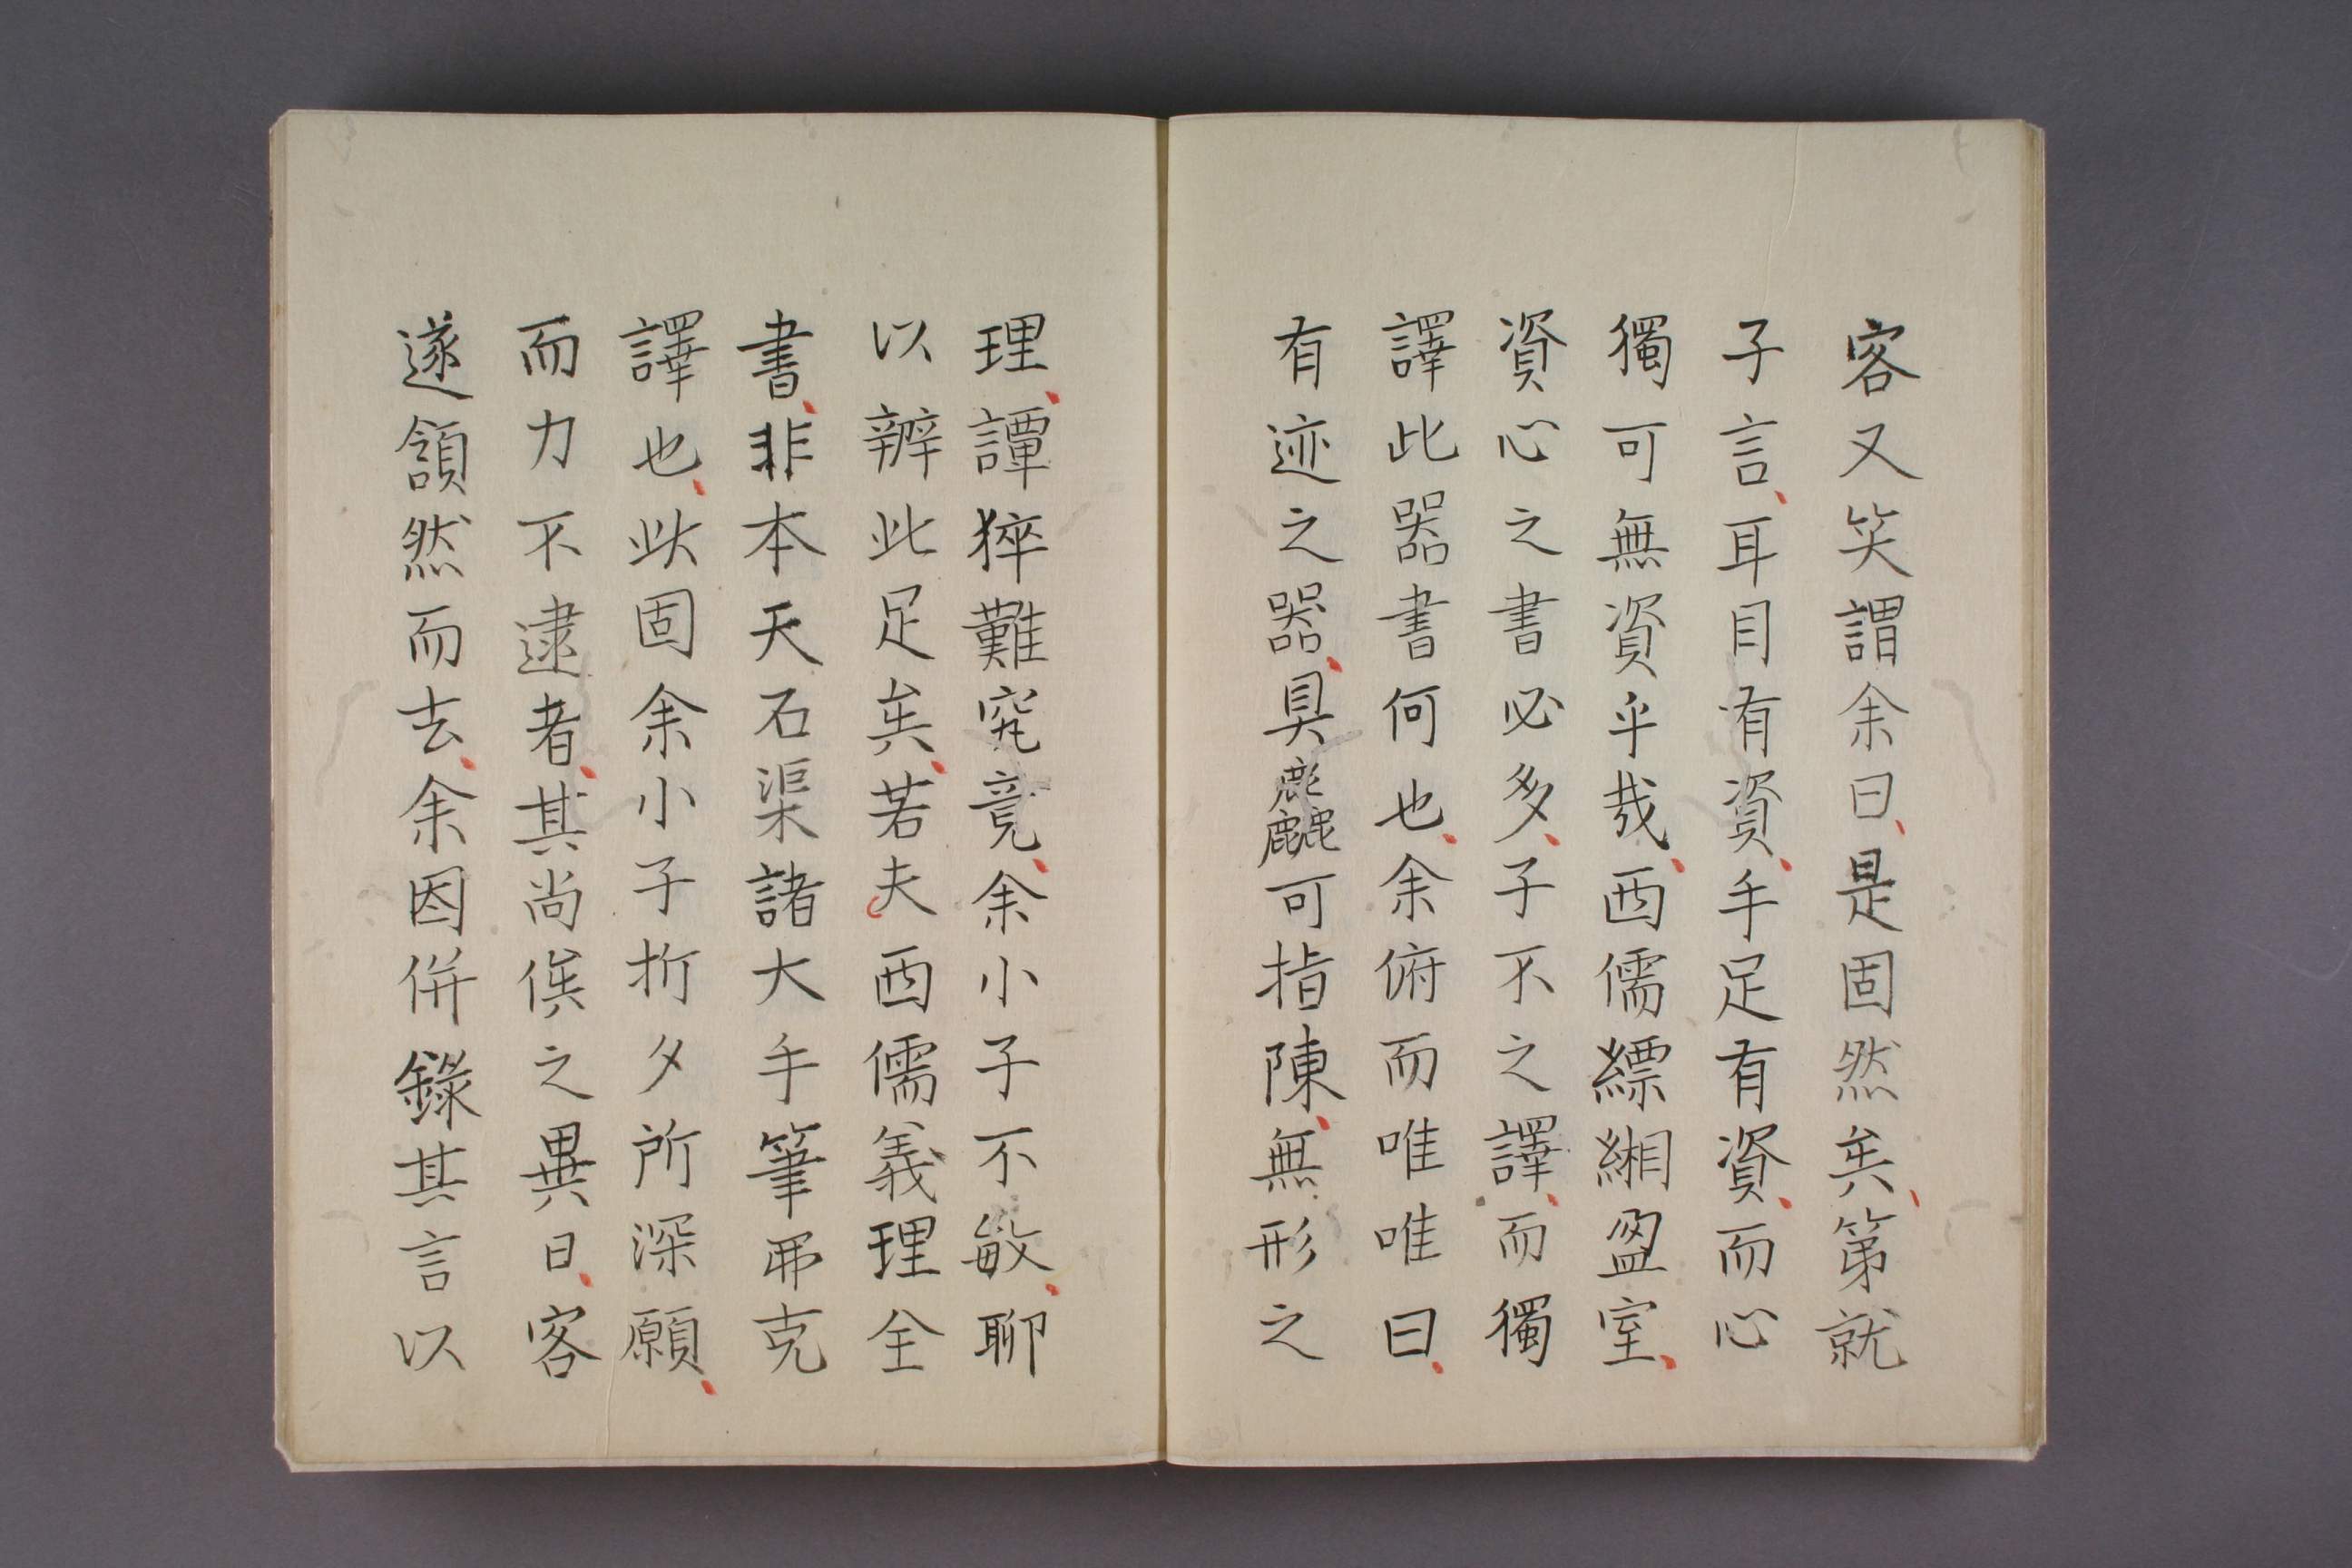 客又笑謂余曰、是固然矣、第就
子言、耳目有資、手足有資、而心
獨可無資乎哉、西儒縹緗盈室、
資心之書必多、子不之譯、而獨
譯此器書何也、余俯而唯唯曰、
有迹之器、具麤可指陳、無形之
理、譚猝難究竟、余小子不敏、聊
以辨此足矣、若夫西儒義理全
書、非木天石渠諸大手筆弗克
譯也、此固余小子折夕所深願、
而力不逮者、其尚俟之異日、客
遂頷然而去、余因併錄其言以